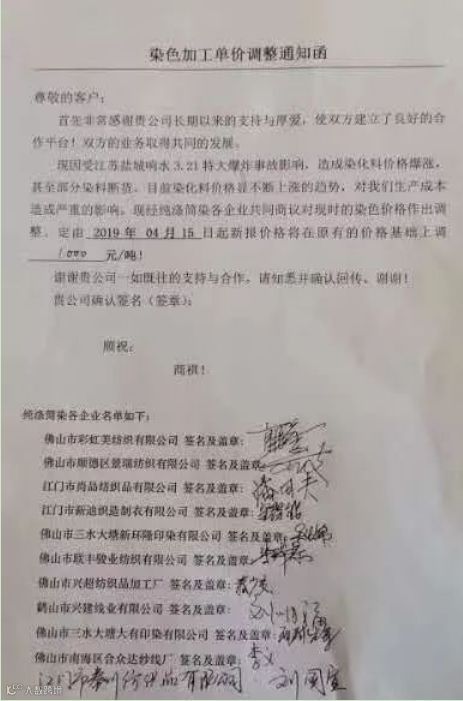 染色加工单价调整通知函
尊敬的客户：
首先非常感谢贵公司长期以来的支持与厚爱，使双方建立了良好的合
作平台！双方的业务取得共同的发展。
现因受江苏盐城响水 3.21 特大爆炸事故影响，造成染化料价格爆涨，
甚至部分染料断货。目前染化料价格显不断上涨的趋势，对我们生产成本
造成严重的影响。现经纯涤筒染各企业共同商议对现时的染色价格作出调
整。定由 2019 年 04 月 15 日起新报价格将在原有的价格基础上调
1000 元/吨！
谢谢贵公司一如既往的支持与合作，请知悉并确认回传、谢谢！
贵公司确认签名（签章）：
顺祝：
商祺！
纯涤筒染各企业名单如下：
佛山市彩虹美纺织有限公司 签名及盖章：
佛山市顺德区景瑞纺织有限公司 签名及盖章：
江门市尚品纺织品有限公司 签名及盖章：
江门市新迪织造制衣有限公司 签名及盖章：
佛山市三水大塘新环隆印染有限公司 签名及盖章：
佛山市联丰骏业纺织有限公司 签名及盖章：
佛山市兴超纺织品加工厂 签名及盖章：
鹤山市兴建线业有限公司 签名及盖章：
佛山市三水大塘大有印染有限公司 签名及盖章：
佛山市南海区合众达纱线厂 签名及盖章： 李义
江门市秦川纺织品有限公司 刘国宣
大数跨境